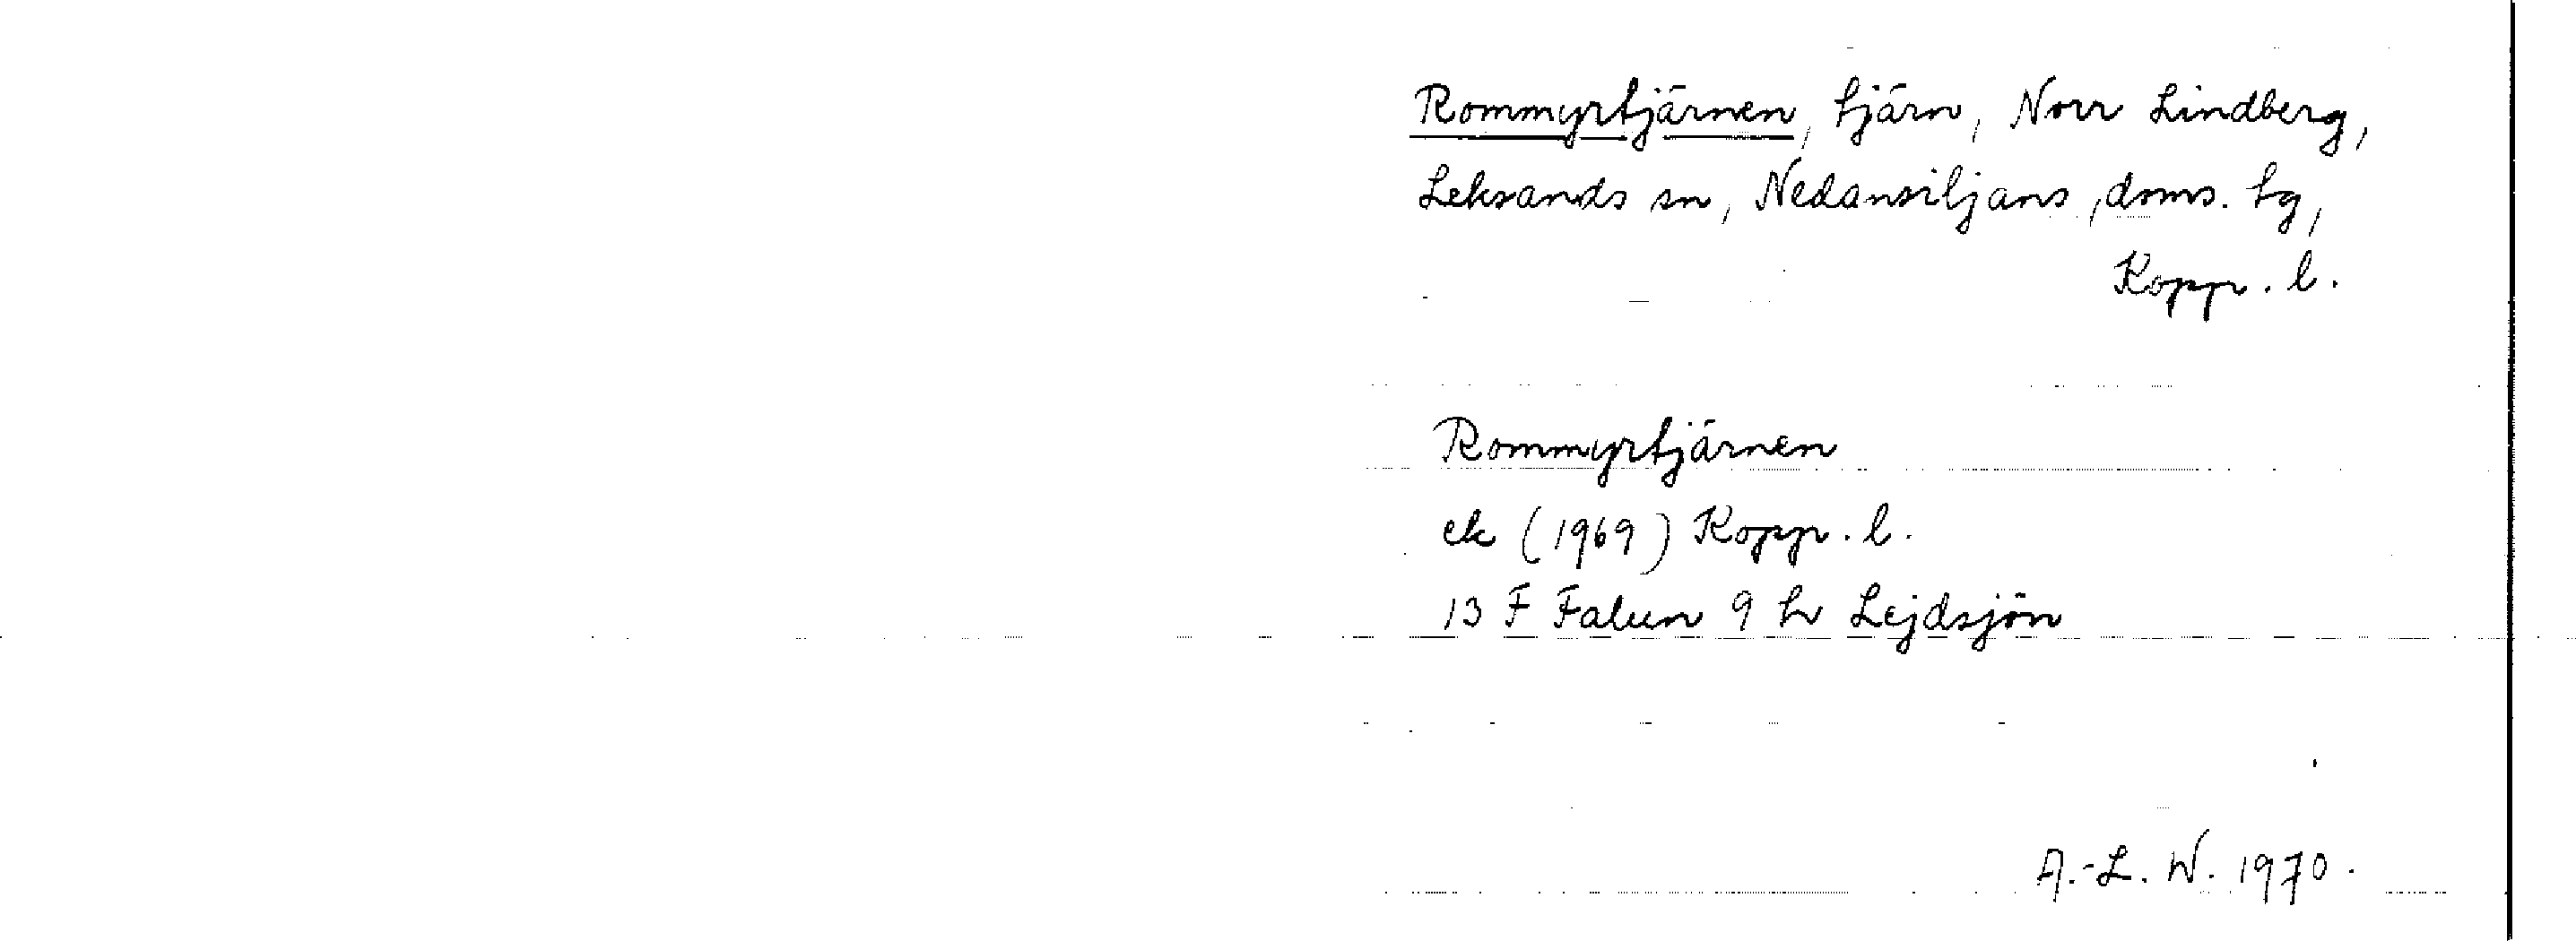 Rommyrtjärnen, tjärn, Norr Lindberg,
Leksands sn, Nedansiljans, doms. tg,
Kopp. l.
Rommyrtjärnen
ek (1969) Kopp. l.
13 F Falun 9 h Lejdsjön
A.-L. W. 1970.